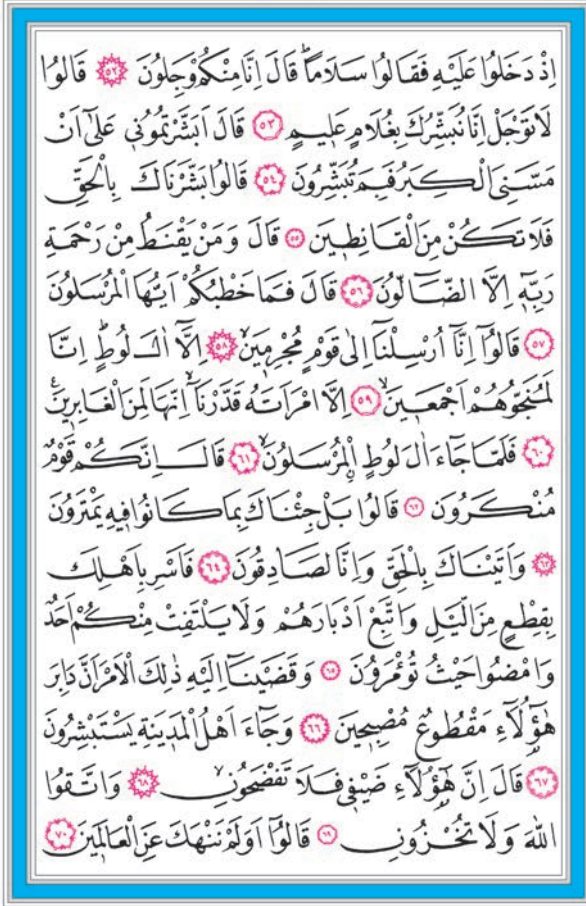 اِذْ دَخَلُوا عَلَيْهِ فَقَالُوا سَلَامًاۜ قَالَ اِنَّا مِنْكُمْ وَجِلُونَ ﴿٥٢﴾ قَالُوا
لَا تَوْجَلْ اِنَّا نُبَشِّرُكَ بِغُلَامٍ عَلٖيمٍ ﴿٥٣﴾ قَالَ اَبَشَّرْتُمُونٖى عَلٰٓى اَنْ
مَسَّنِىَ الْكِبَرُ فَبِمَ تُبَشِّرُونَ ﴿٥٤﴾ قَالُوا بَشَّرْنَاكَ بِالْحَقِّ
فَلَا تَكُنْ مِنَ الْقَانِطٖينَ ﴿٥٥﴾ قَالَ وَمَنْ يَقْنَطُ مِنْ رَحْمَةِ
رَبِّهٖٓ اِلَّا الضَّٓالُّونَ ﴿٥٦﴾ قَالَ فَمَا خَطْبُكُمْ اَيُّهَا الْمُرْسَلُونَ
﴿٥٧﴾ قَالُٓوا اِنَّٓا اُرْسِلْنَٓا اِلٰى قَوْمٍ مُجْرِمٖينَۙ ﴿٥٨﴾ اِلَّٓا اٰلَ لُوطٍۜ اِنَّا
لَمُنَجُّوهُمْ اَجْمَعٖينَۙ ﴿٥٩﴾ اِلَّا امْرَاَتَهُ قَدَّرْنَٓاۙ اِنَّهَا لَمِنَ الْغَابِرٖينَ۟
﴿٦٠﴾ فَلَمَّا جَٓاءَ اٰلَ لُوطٍ الْمُرْسَلُونَۙ ﴿٦١﴾ قَالَ اِنَّكُمْ قَوْمٌ
مُنْكَرُونَ ﴿٦٢﴾ قَالُوا بَلْ جِئْنَاكَ بِمَا كَانُوا فٖيهِ يَمْتَرُونَ
﴿٦٣﴾ وَاَتَيْنَاكَ بِالْحَقِّ وَاِنَّا لَصَادِقُونَ ﴿٦٤﴾ فَاَسْرِ بِاَهْلِكَ
بِقِطْعٍ مِنَ الَّيْلِ وَاتَّبِعْ اَدْبَارَهُمْ وَلَا يَلْتَفِتْ مِنْكُمْ اَحَدٌ
وَامْضُوا حَيْثُ تُؤْمَرُونَ ﴿٦٥﴾ وَقَضَيْنَٓا اِلَيْهِ ذٰلِكَ الْاَمْرَ اَنَّ دَابِرَ
هٰٓؤُلَٓاءِ مَقْطُوعٌ مُصْبِحٖينَ ﴿٦٦﴾ وَجَٓاءَ اَهْلُ الْمَدٖينَةِ يَسْتَبْشِرُونَ
﴿٦٧﴾ قَالَ اِنَّ هٰٓؤُلَٓاءِ ضَيْفٖى فَلَا تَفْضَحُونِۙ ﴿٦٨﴾ وَاتَّقُوا
اللّٰهَ وَلَا تُخْزُونِ ﴿٦٩﴾ قَالُٓوا اَوَلَمْ نَنْهَكَ عَنِ الْعَالَمٖينَ ﴿٧٠﴾